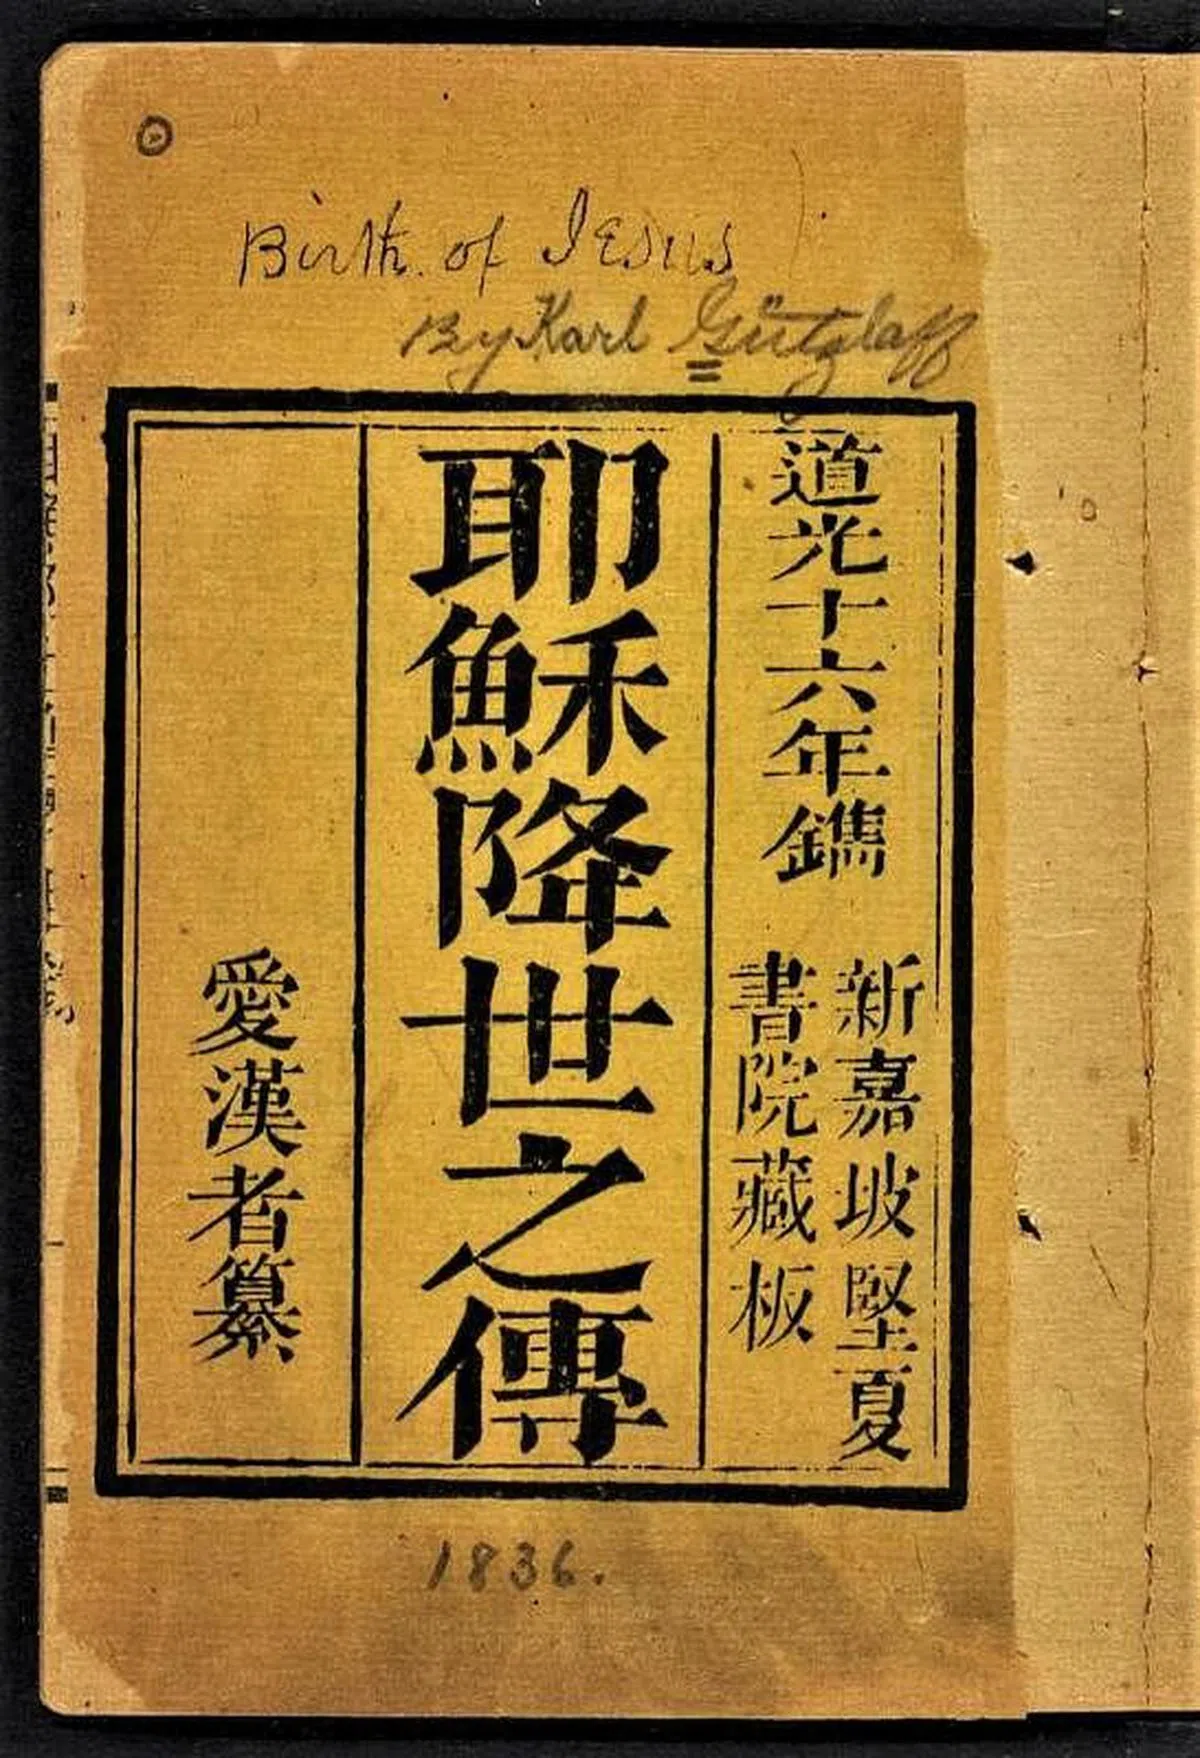 Birth. of Jesus
By Karl Gützlaff
道光十六年鐫
新嘉坡堅夏
書院藏板
耶穌降世之傳
愛漢者纂
1836.